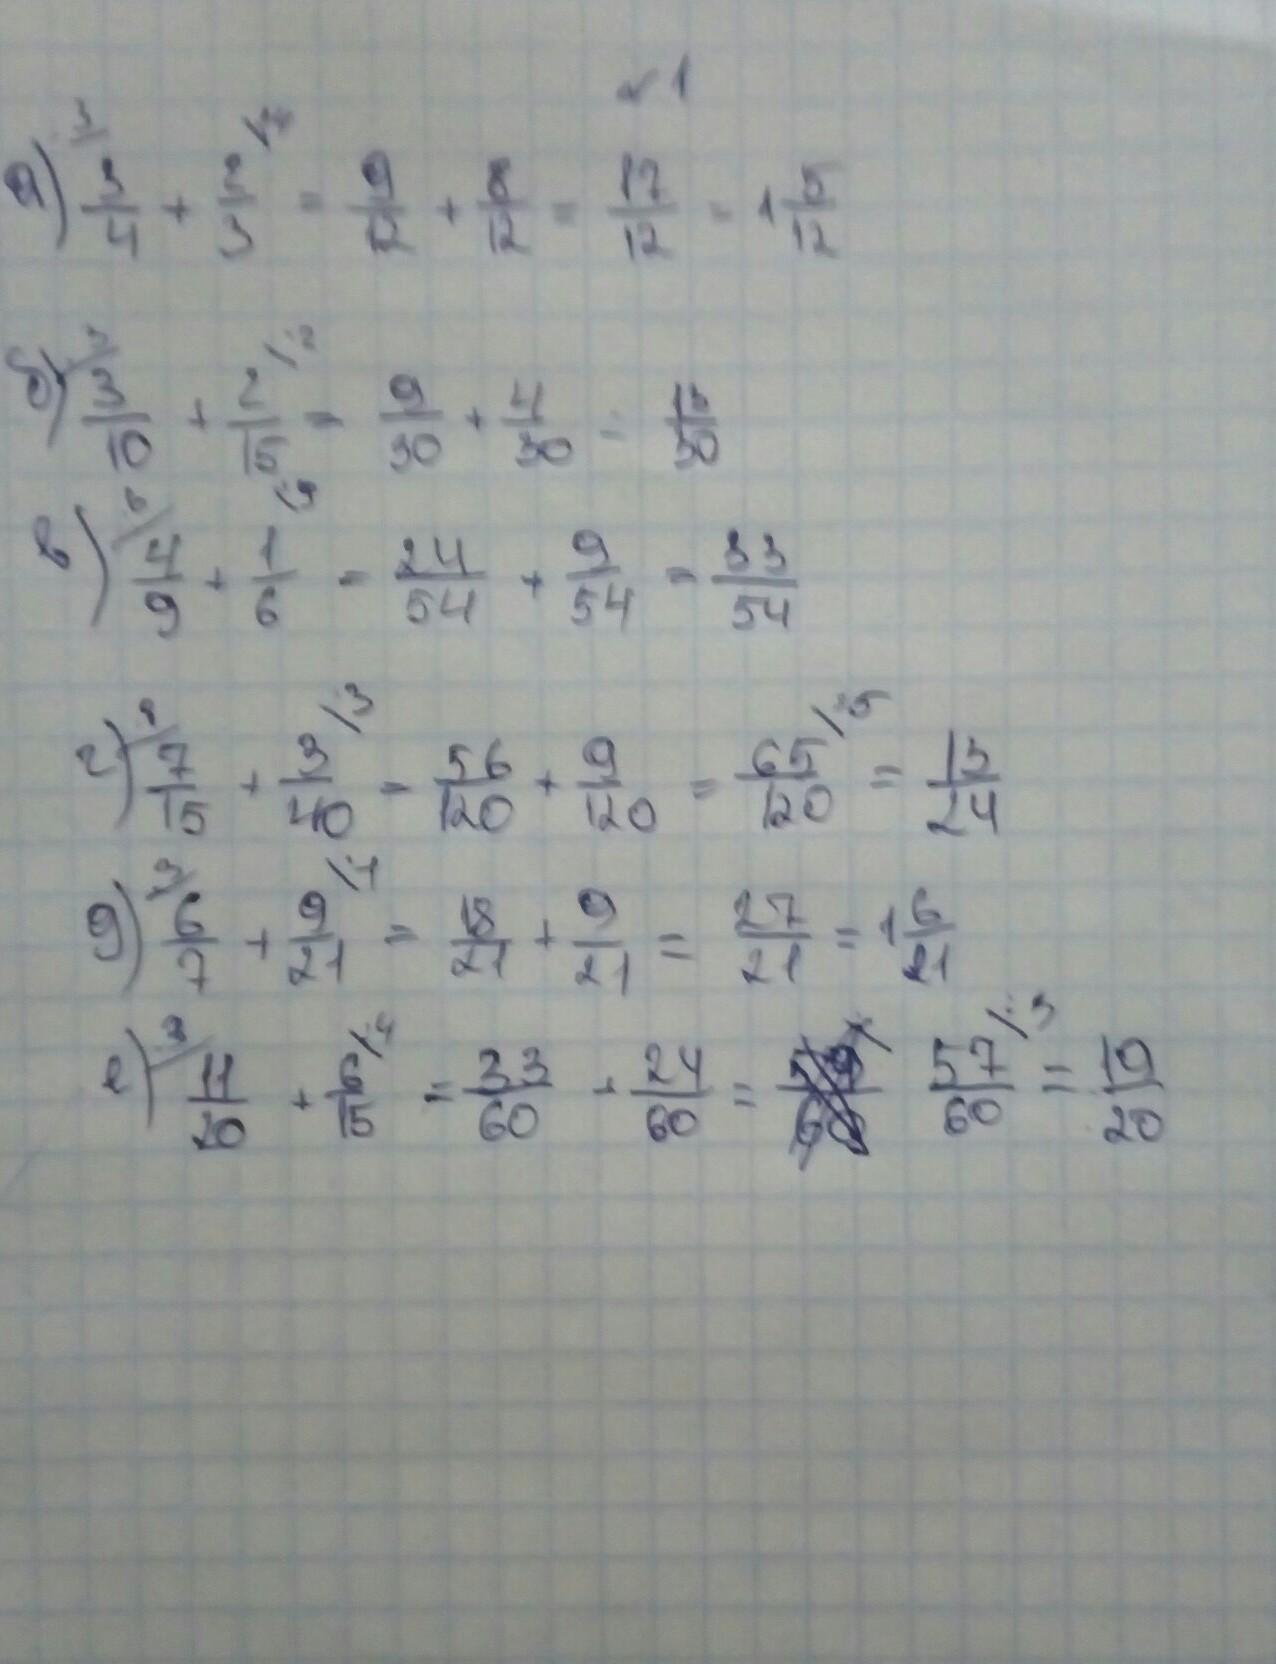 √1
а) 3/ 3/4 + 2/3 \·4 = 9/12 + 8/12 = 17/12 = 1 5/12
б) 3/ 3/10 + 2/15 \·2 = 9/30 + 4/30 = 13/30
в) 6/ 4/9 + 1/6 \·9 = 24/54 + 9/54 = 33/54
г) 8/ 7/15 + 3/40 \·3 = 56/120 + 9/120 = 65/120 \:5 = 13/24
д) 3/ 6/7 + 9/21 \·1 = 18/21 + 9/21 = 27/21 = 1 6/21
е) 3/ 11/20 + 6/15 \·4 = 33/60 + 24/60 = 57/60 \:3 = 19/20